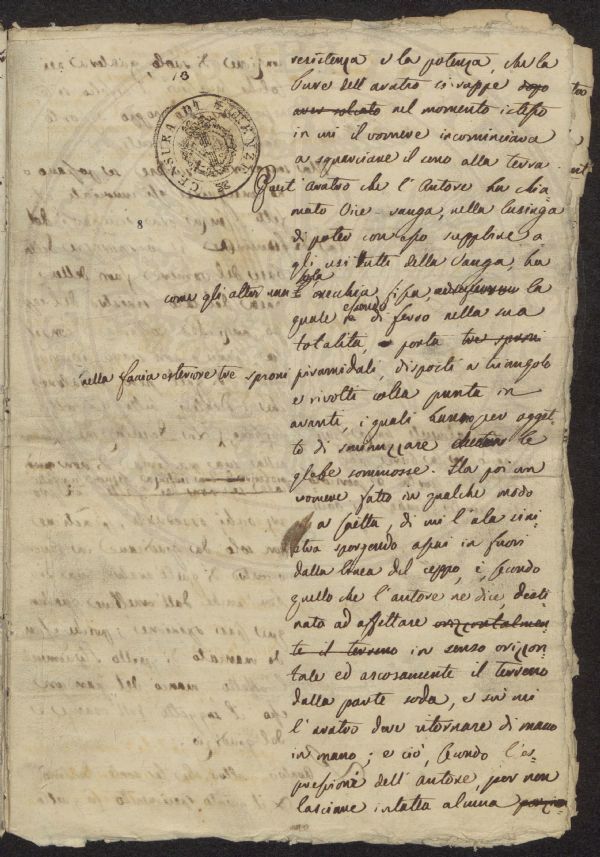 resistenza e la potenza, che la
bure dell'aratro si ruppe dopo
aver solcato nel momento istesso
in cui il vomere incominciava
a squarciare il seno alla terra.
Quest'aratro che l'Autore ha chia
mato Ore-vanga, nella lusinga
di poter con esso supplire a
gli usi tutti della Vanga, ha
come gli altri una sola orecchia fissa, la
quale essendo di ferro nella sua
totalità, porta tre sproni
nella faccia esteriore tre sproni piramidali, disposti a triangolo
e rivolti colla punta in
avanti, i quali hanno per ogget
to di sminuzzare le
glebe sommosse. Ha poi un
vomere fatto in qualche modo
a saetta, di cui l'ala sini
stra sporgendo assai in fuori
dalla linea del ceppo, è, secondo
quello che l'autore ne dice, desti
nato ad affettare orizzontalmen
te il terreno in senso orizzon
tale ed ascosamente il terreno
dalla parte soda, e su cui
l'aratro deve ritornare di mano
in mano; e ciò, secondo l'es
pressione dell'autore, per non
lasciare intatta alcuna
13
CENSURA
8